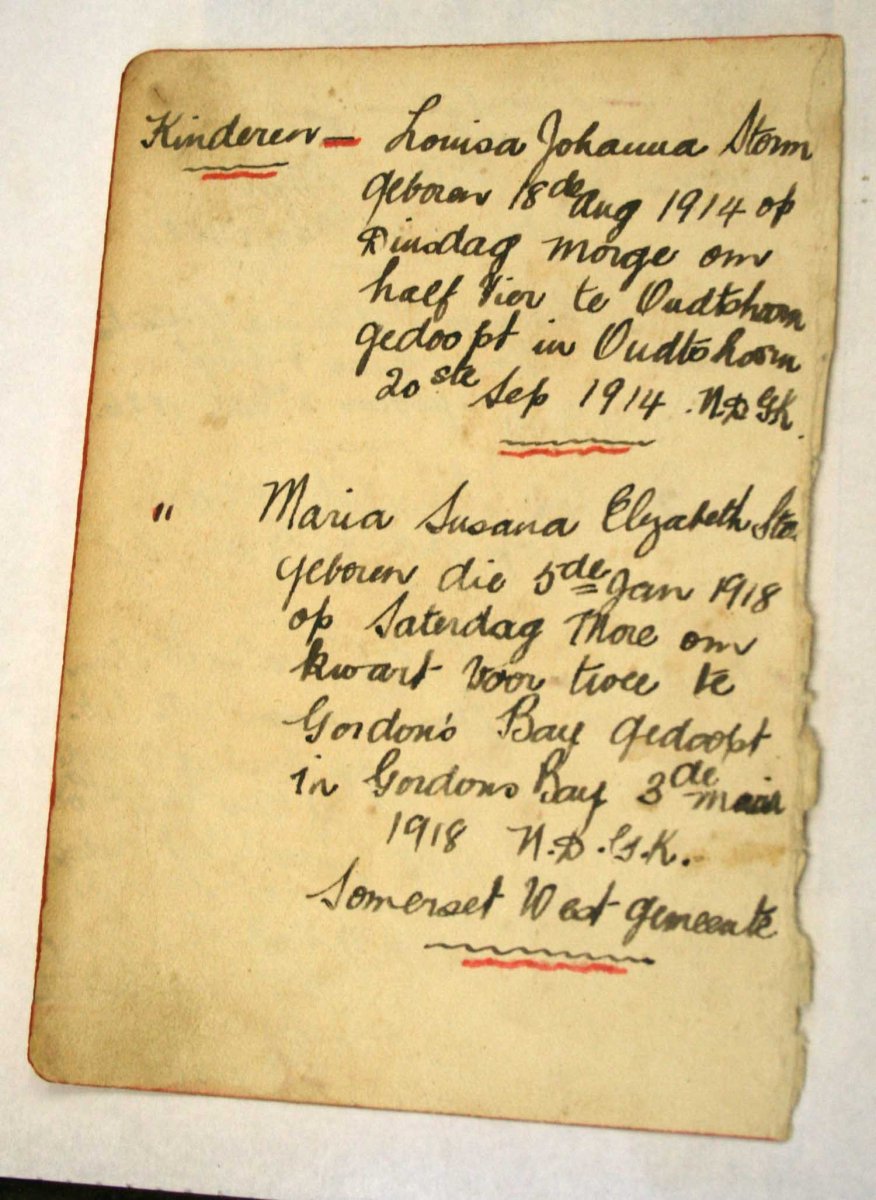 Kinderen — Louisa Johanna Storm
geboren 18de Aug 1914 op
Dinsdag morge om
half Vier te Oudtshoorn
gedoopt in Oudtshoorn
20ste Sep 1914 . N.D.G.K.
" Maria Susana Elizabeth Sto
geboren die 5de Jan 1918
op Saterdag More om
kwart voor twee te
Gordon's Bay gedoopt
in Gordons Bay 3de
1918 N.D.G.K.
Somerset West gemeente